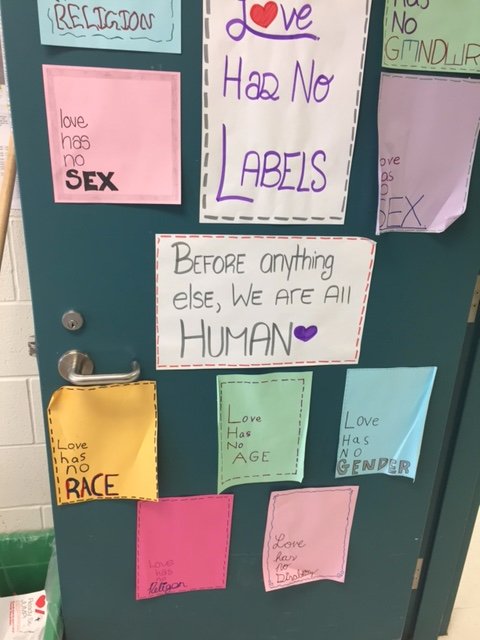 RELIGION
Love
Has No
LABELS
has
No
love
has
no
SEX
ove
as
o
SEX
BEFORE anything
else, WE ARE All
HUMAN
Love
has
no
RACE
Love
Has
No
AGE
Love
HAS
NO
GENDER
Love
has
no
Religion
Love
has
no
Disability